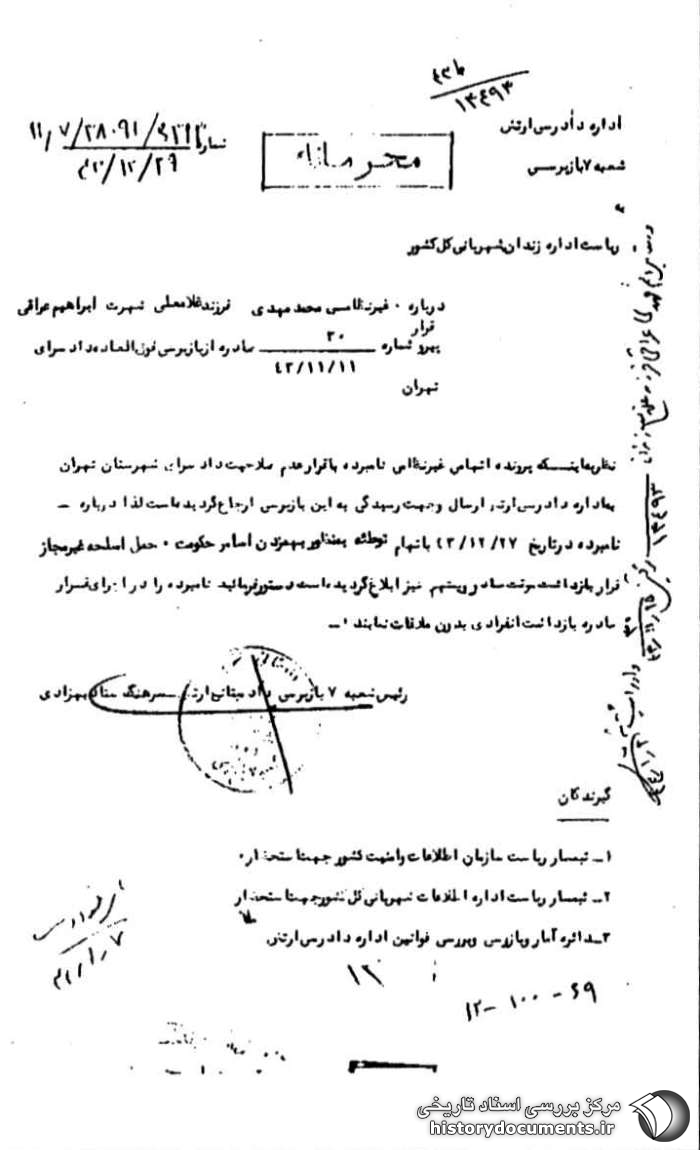 ۱۳۴۹۳
اداره دادرسی ارتش
شعبه ۷ بازپرسی
شماره ۱۱/۷/۲۸۰۹۱/
۴۳/۱۲/۲۹
محرمانه
به
ریاست اداره زندان شهربانی کل کشور
درباره ۰ غیرنظامی محمد مهدی فرزند غلامعلی شهرت ابراهیم عراقی
قرار
پیرو شماره ۲۰ صادره از بازپرسی فوق العاده دادسرای
۴۳/۱۱/۱۱
تهران
نظر باینکه پرونده اتهامی غیرنظامی نامبرده با قرار عدم صلاحیت دادسرای شهرستان تهران
به اداره دادرسی ارتش ارسال و جهت رسیدگی به این بازپرسی ارجاع گردیده است لذا درباره ـ
نامبرده در تاریخ ۴۳/۱۲/۲۷ باتهام توطئه بمنظور بهمزدن اساس حکومت ۰ حمل اسلحه غیرمجاز
قرار بازداشت موقت صادر و بمتهم نیز ابلاغ گردیده است دستور فرمائید نامبرده را در اجرای قرار
صادره بازداشت انفرادی بدون ملاقات نمایند ۰ـ
رئیس شعبه ۷ بازپرسی دادستانی ارتش ـ سرهنگ ستاد بهزادی
گیرندگان
۱ـ تیمسار ریاست سازمان اطلاعات و امنیت کشور جهت استحضار۰
۲ـ تیمسار ریاست اداره اطلاعات شهربانی کل کشور جهت استحضار
۳ـ دائره آمار و بازرسی و بررسی قوانین اداره دادرسی ارتش
۱۲
۱۲-۱۰۰-۶۹
مرکز بررسی اسناد تاریخی
historydocuments.ir